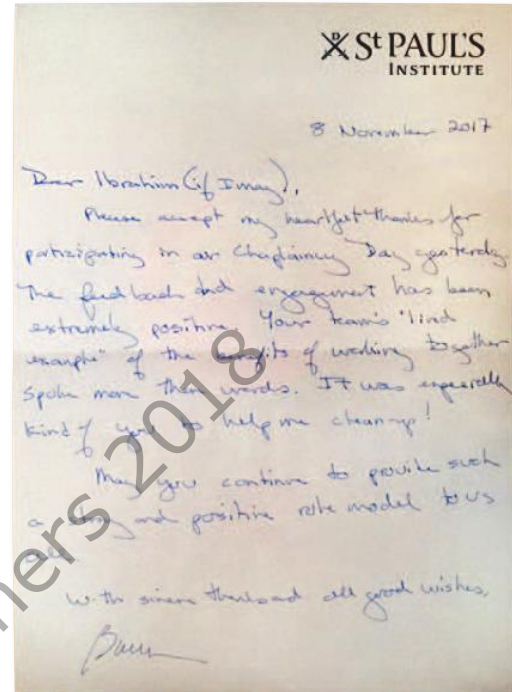 St PAUL'S
INSTITUTE
8 November 2017
Dear Ibrahim (if I may),
Please accept my heartfelt thanks for
participating in our Chaplaincy Day yesterday.
The feedback and engagement has been
extremely positive. Your team's "lived
example" of the benefits of working together
spoke more than words. It was especially
kind of you to help me clean-up!
May you continue to provide such
a strong and positive role model to us
all.
With sincere thanks and all good wishes,
ners 2018